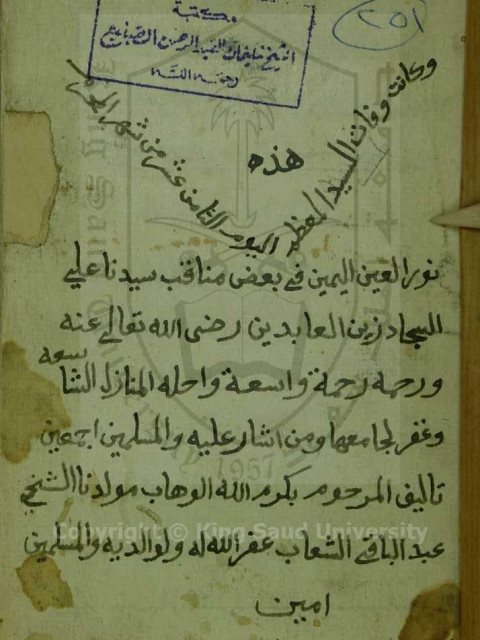 مكتبة
الشيخ سليمان بن عبد الرحمن الصنيع
رحمه الله
٢٥١
وكانت وفات السيد المعظم اليوم الثامن عشر من شهر المحرم
هذه
نور العين اليمين في بعض مناقب سيدنا علي
السجاد زين العابدين رضى الله تعالى عنه
ورحمه رحمة واسعة واحله المنازل الشاسعه
وغفر لجامعها ومن اشار عليه والمسلمين اجمعين
تاليف المرحوم بكرم الله الوهاب مولدنا الشيخ
عبد الباقي الشعاب غفر الله له ولوالديه والمسلمين
امين
Copyright © King Saud University
1957